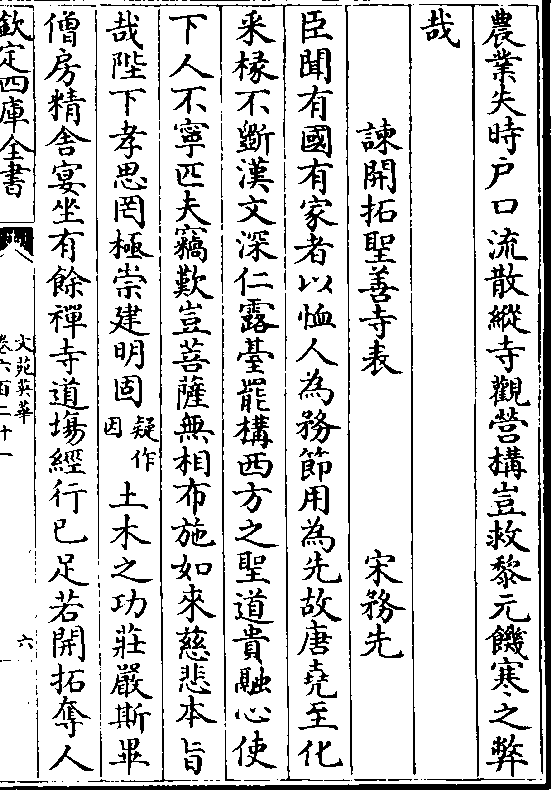 農業失時户口流散縱寺觀營構豈救黎元饑寒之弊
哉
諫開拓聖善寺表 宋務先
臣聞有國有家者以恤人為務節用為先故唐堯至化
采椽不斵漢文深仁露臺罷構西方之聖道貴融心使
下人不寧匹夫竊歎豈菩薩無相布施如來慈悲本旨
哉陛下孝思罔極崇建明固疑作因土木之功莊嚴斯畢
僧房精舍宴坐有餘禪寺道場經行已足若開拓奪人
欽定四庫全書
文苑英華
卷六百二十一
六